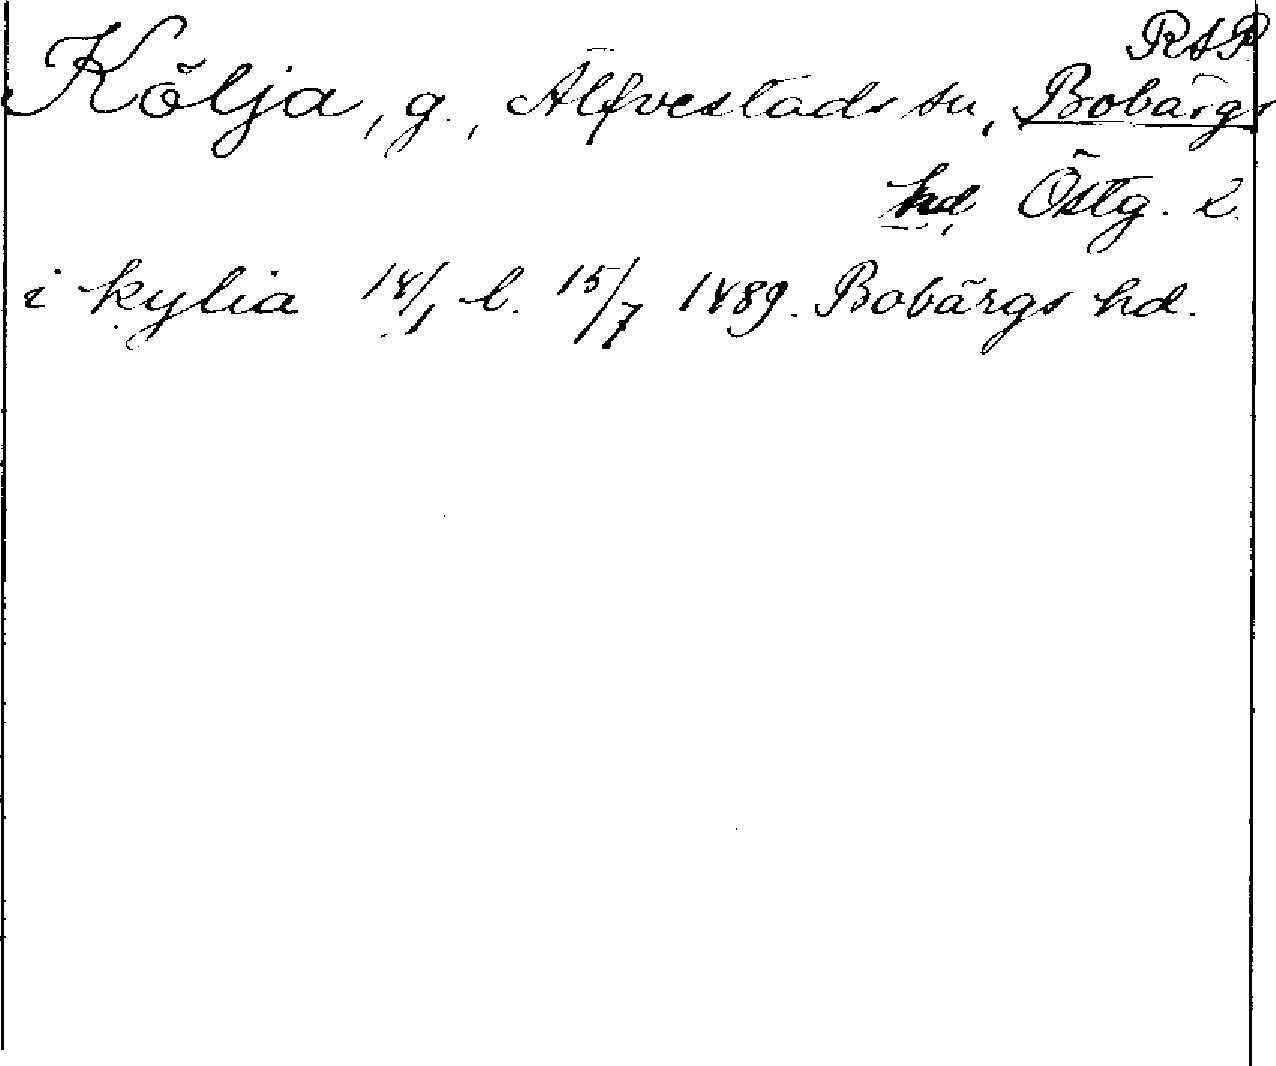 RAP
Kölja, g., Älfvestads sn, Bobärgs
hd Östg. L
i kylia 14/1 l. 15/7 1489. Bobärgs hd.